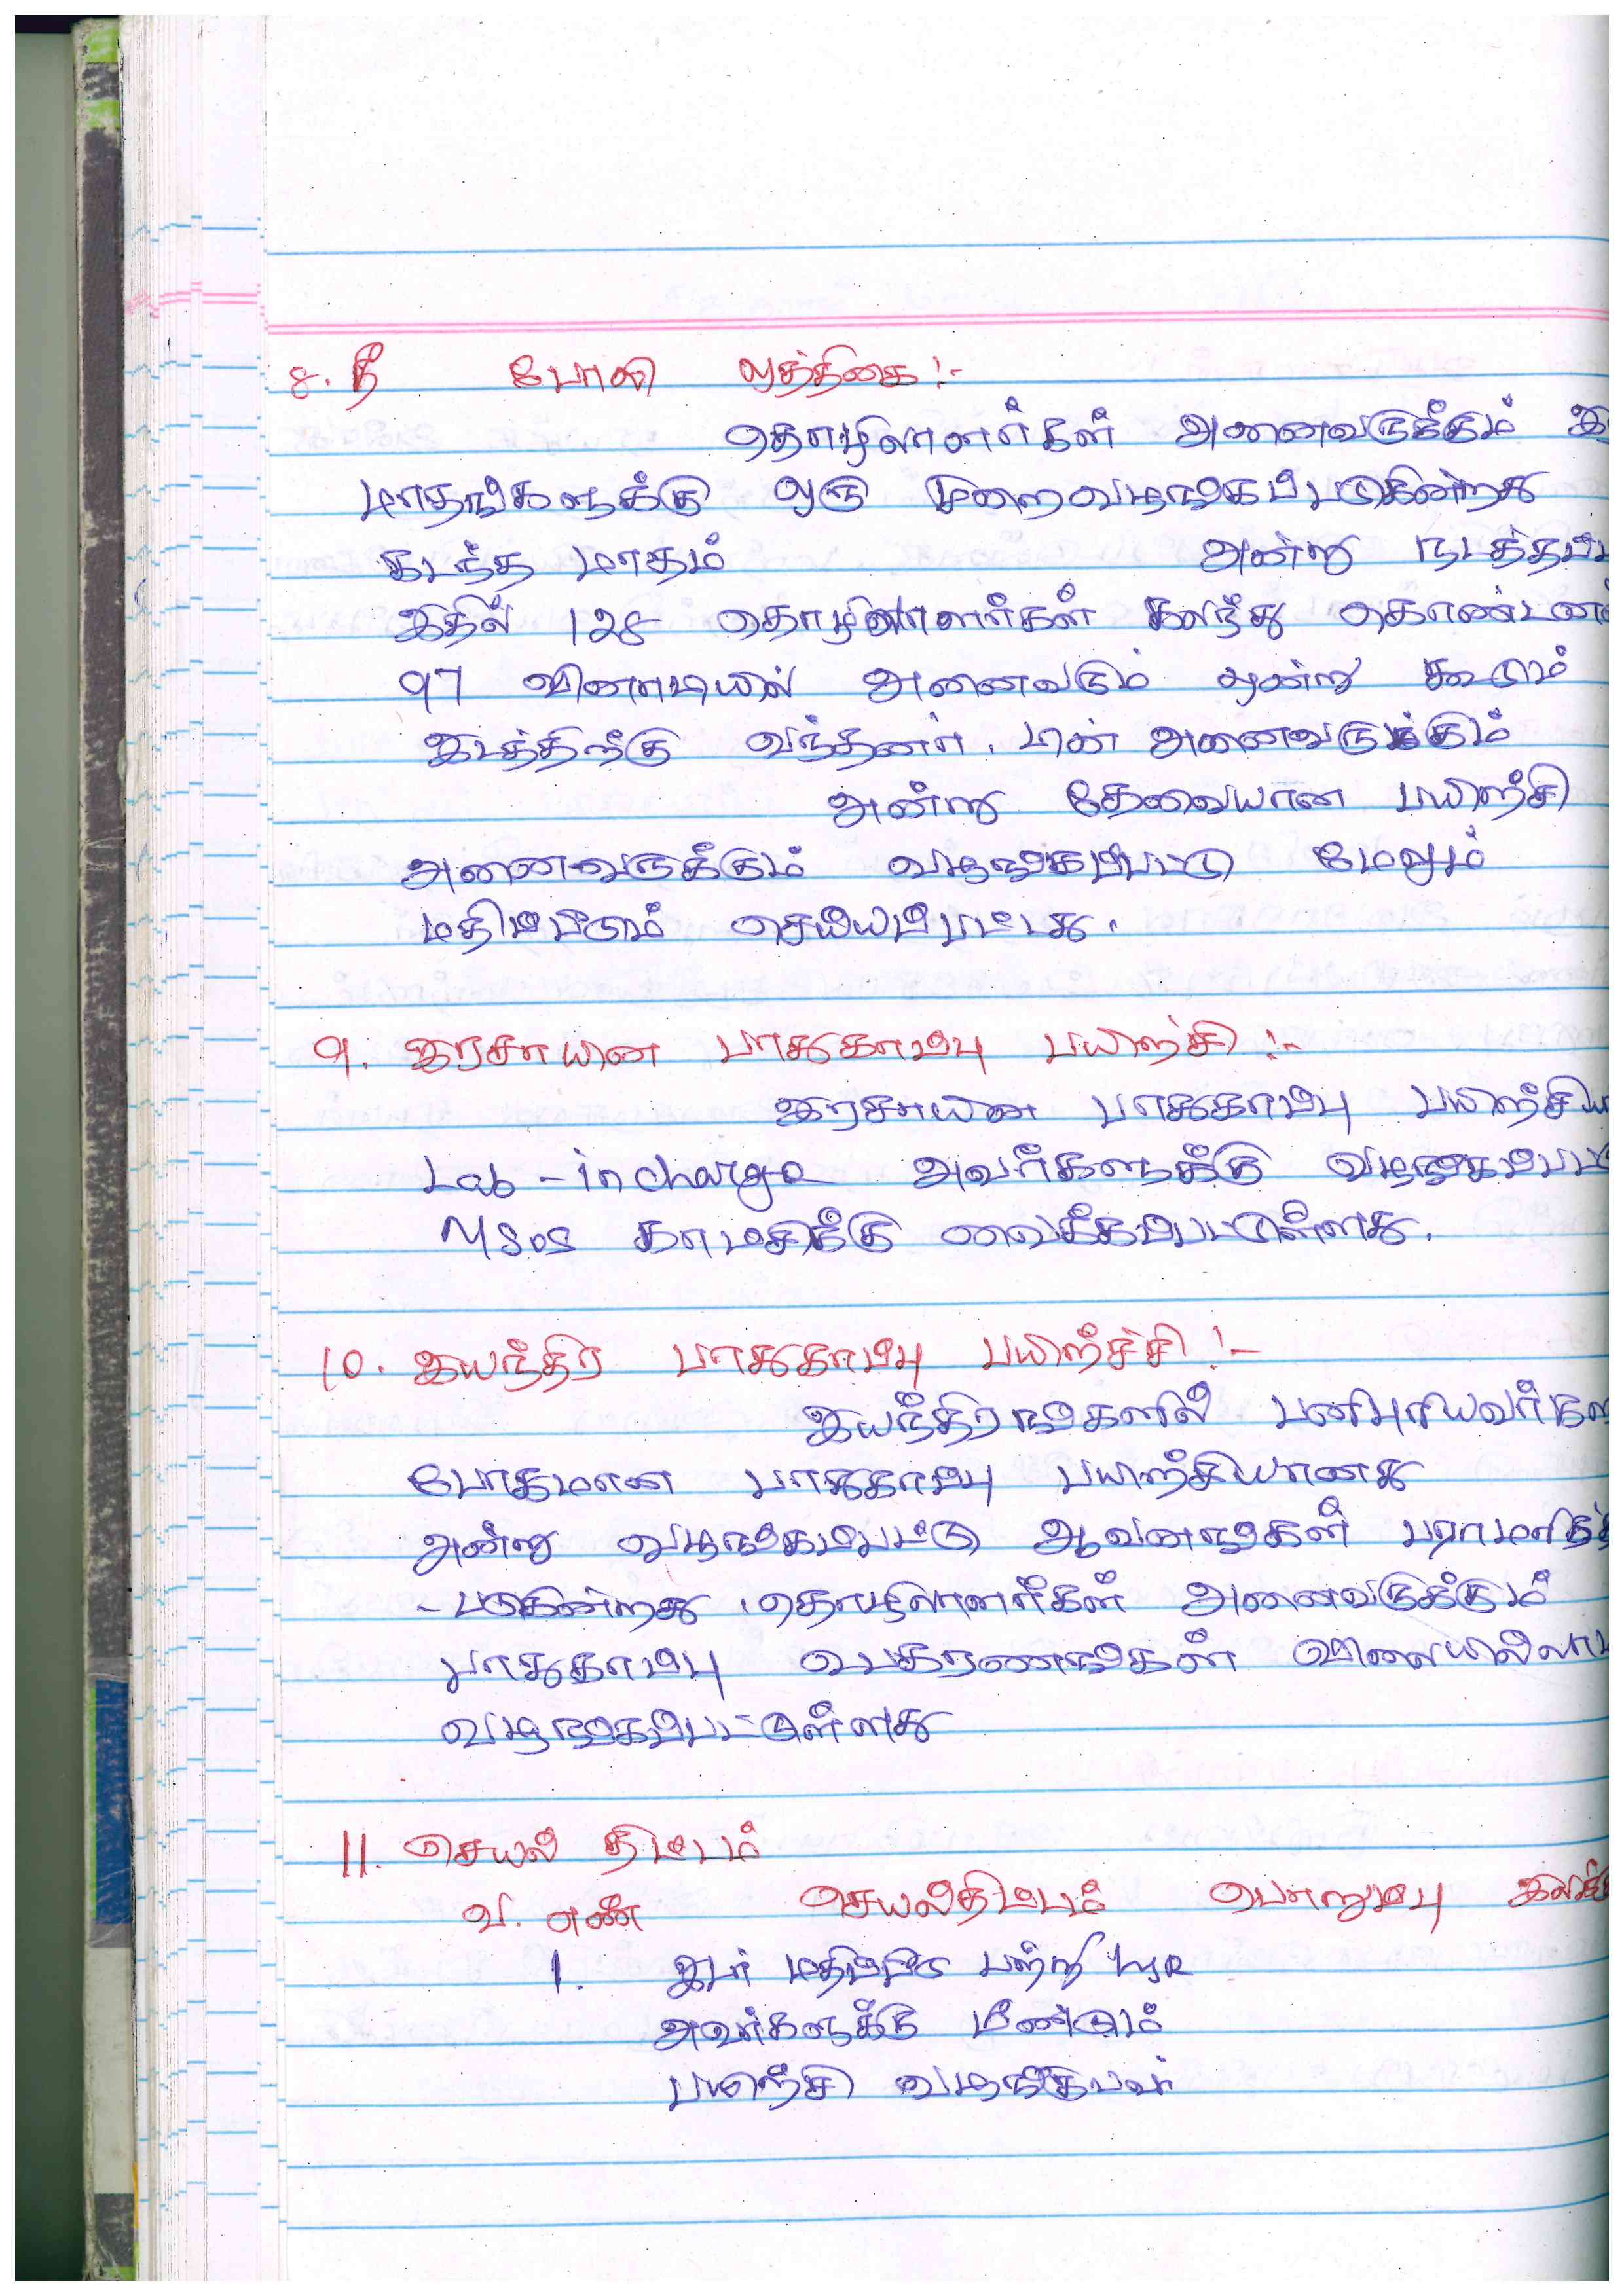 8. தீ போலி ஒத்திகை :-
தொழிலாளர்கள் அனைவருக்கும்
மாதங்களுக்கு ஒரு முறை வழங்கப்படுகின்றது
கடந்த மாதம் அன்று நடத்தப்ப
இதில் 128 தொழிலாளர்கள் கலந்து கொண்டன
97 வினாடியில் அனைவரும் ஒன்று கூடும்
இடத்திற்கு வந்தனர். பின் அனைவருக்கும்
அன்று தேவையான பயிற்சி
அனைவருக்கும் வழங்கப்பட்டு மேலும்
மதிப்பீடும் செய்யப்பட்டது.
9. இரசாயன பாதுகாப்பு பயிற்சி :-
இரசாயன பாதுகாப்பு பயிற்சிய
Lab - incharge அவர்களுக்கு வழங்கப்பட்டு
MSDS காட்சிக்கு வைக்கப்பட்டுள்ளது.
10. இயந்திர பாதுகாப்பு பயிற்ச்சி :-
இயந்திரங்களில் பனிபுரியவர்களு
போதுமான பாதுகாப்பு பயிற்சியானது
அன்று வழங்கப்பட்டு ஆவணங்கள் பராமரிக்க
- படுகின்றது. தொழிலாளர்கள் அனைவருக்கும்
பாதுகாப்பு உபகரணங்கள் விலையில்லா
வழங்கப்பட்டுள்ளது
11. செயல் திட்டம்
வ. எண் செயல்திட்டம் பொறுப்பு
1. இடர் மதிப்பீடு பற்றி HR
அவர்களுக்கு மீண்டும்
பயிற்சி